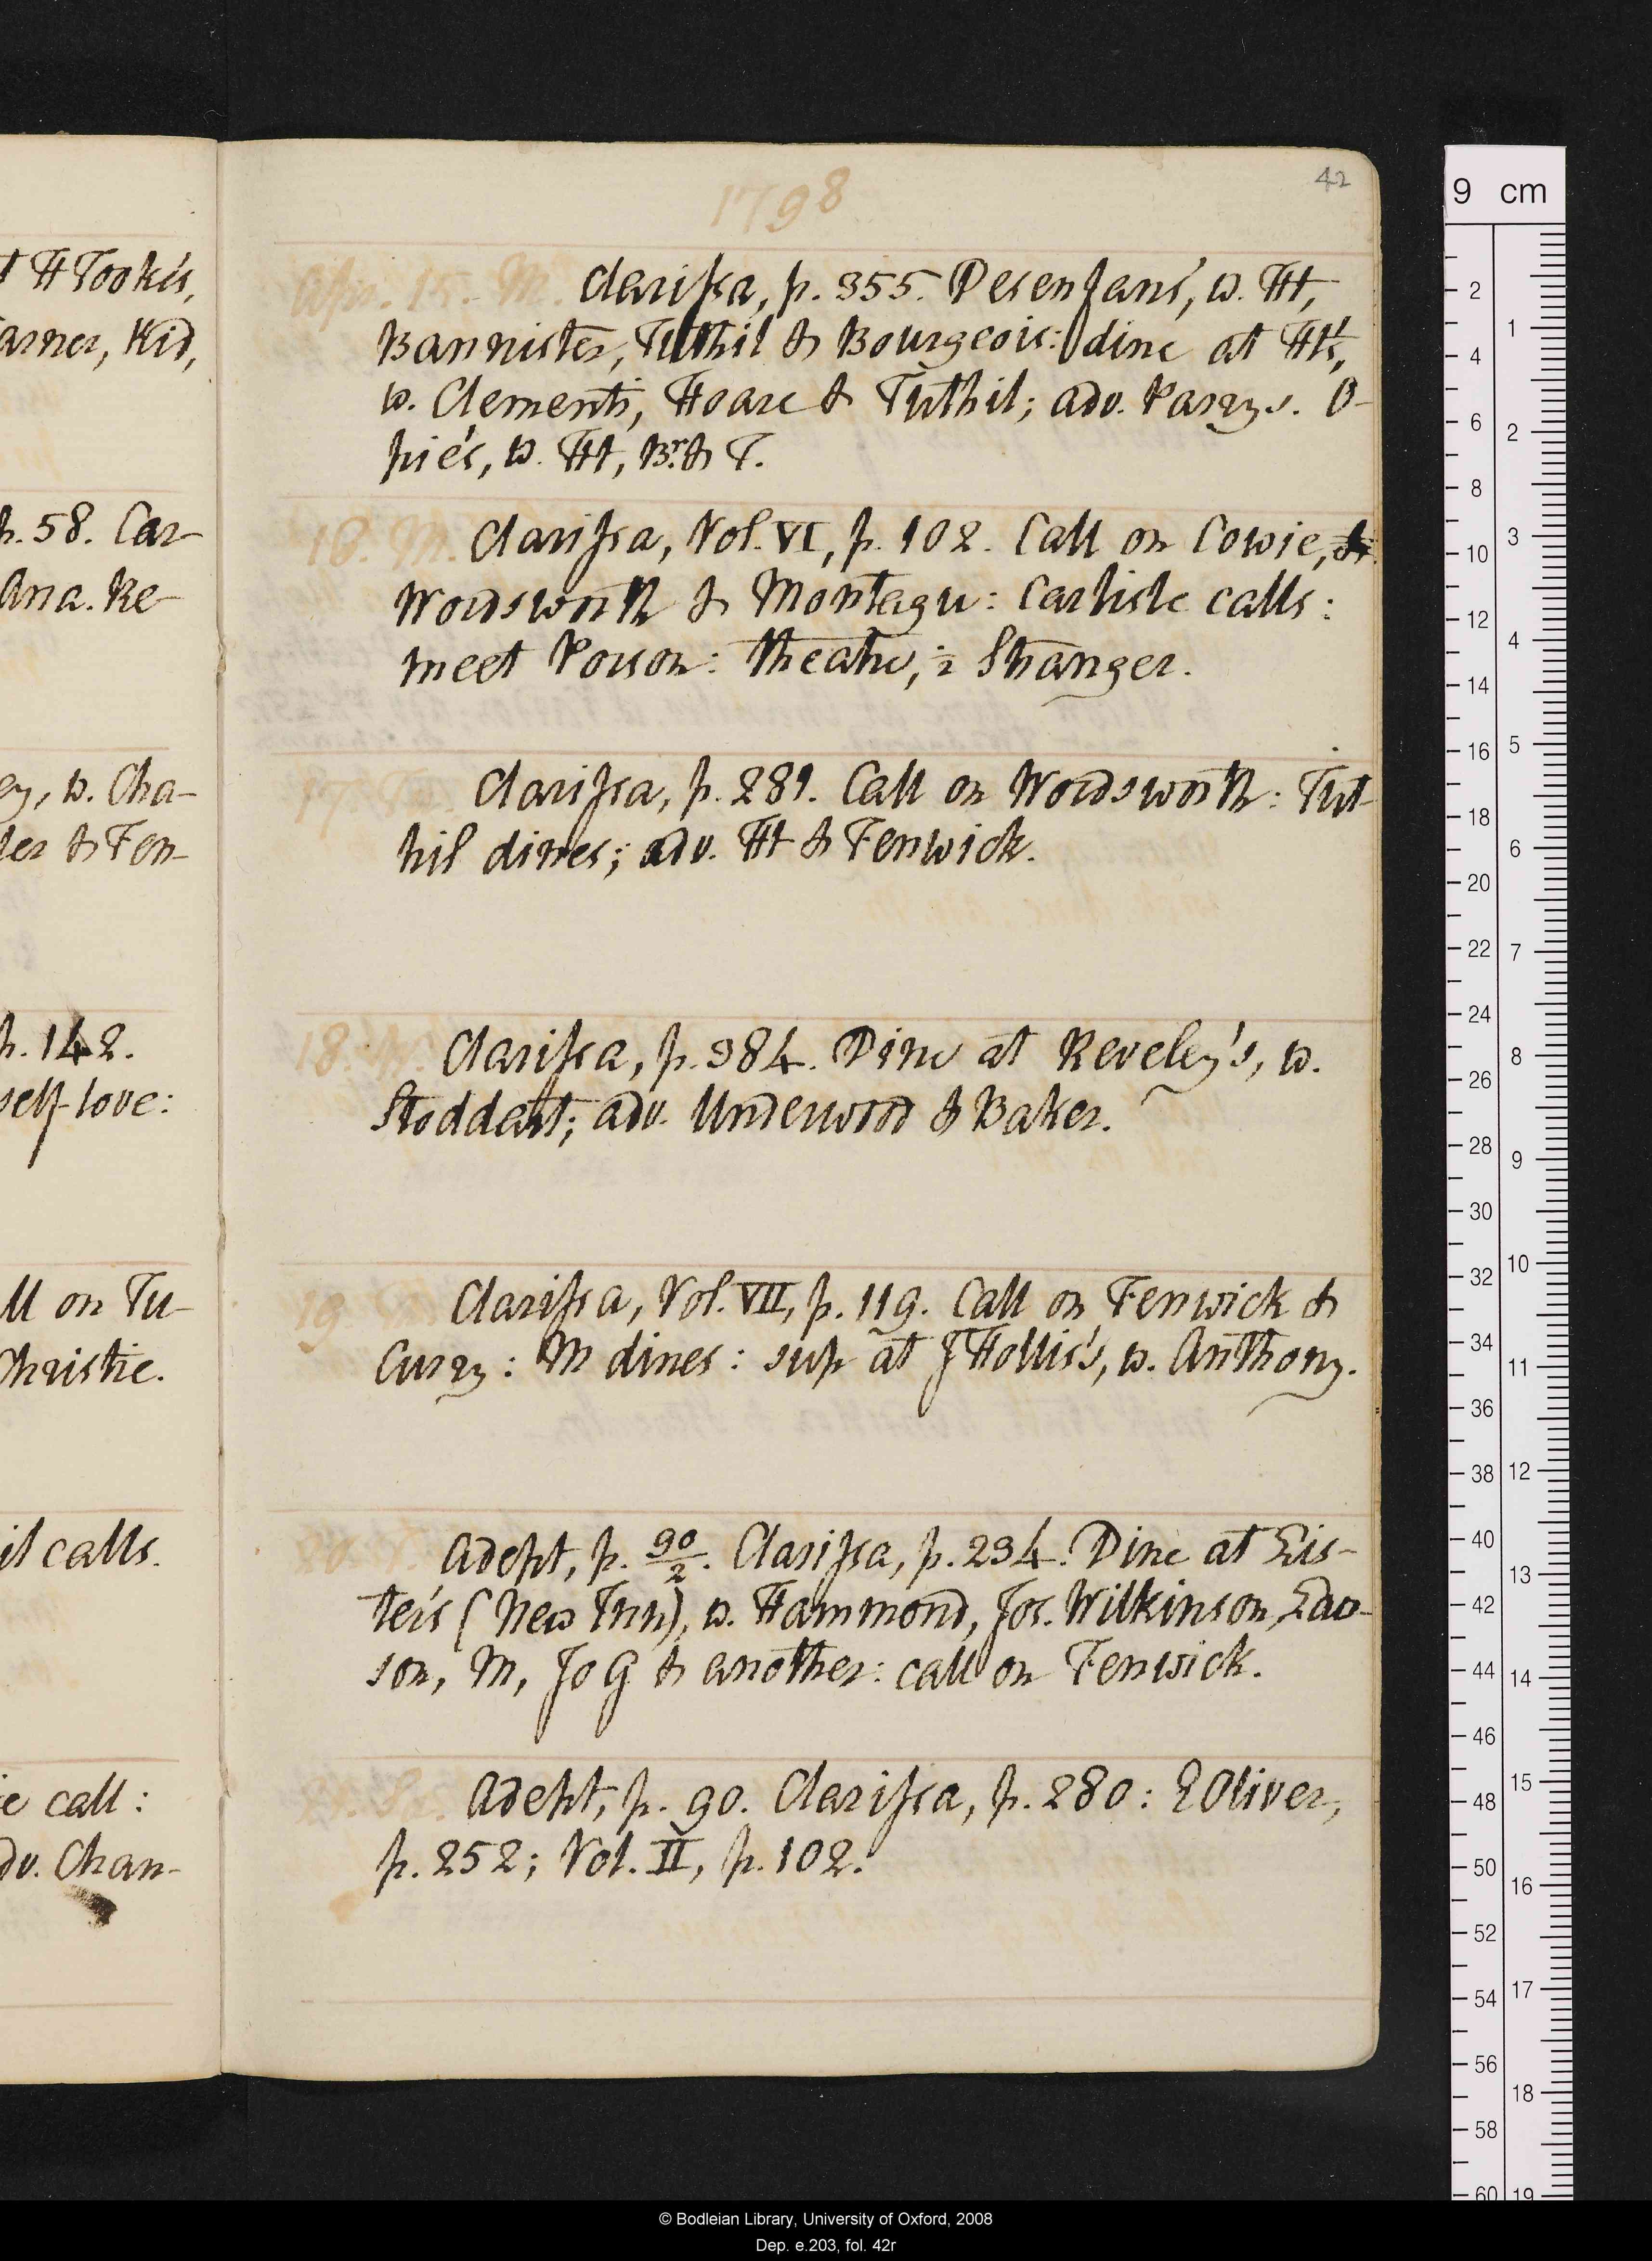 1798
42
t HTooke's,
arner, Kid,
p. 58. Car-
Ana. Re-
ey, w. Cha-
ter & Fen-
p. 142.
self-love:
ll on Tu-
Christie.
il calls.
e call:
adv. Chan-
Apr. 15. Clarissa, p. 355. Desenfans', w. Ht,
Bannister, Tuthil & Bourgeois: dine at Ht's,
w. Clementi, Hoare & Tuthil; adv. Parrys. O-
pie's, w. Ht, Br. & T.
16. M. Clarissa, Vol. VI, p. 102. Call on Cowie,
Wordsworth & Montagu: Carlisle calls:
meet Porson: theatre, ½ Stranger.
17. Tu. Clarissa, p. 281. Call on Wordsworth: Tut-
hil dines; adv. Ht & Fenwick.
18. Clarissa, p. 384. Dine at Reveley's, w.
Stoddart; adv. Underwood & Baker.
19. Clarissa, Vol. VII, p. 119. Call on Fenwick &
Curry: M dines: sup at JHollis's, w. Anthony.
20. Adept, p. 90/2. Clarissa, p. 234. Dine at Lis-
ter's (New Inn), w. Hammond, Jos. Wilkinson, Daw-
son, M, Jo G & another: call on Fenwick.
Adept, p. 90. Clarissa, p. 280: EOliver,
p. 252; Vol. II, p. 102.
9 cm
2
4
6
8
10
12
14
16
18
20
22
24
26
28
30
32
34
36
38
40
42
44
46
48
50
52
54
56
58
60
1
2
3
4
5
6
7
8
9
10
11
12
13
14
15
16
17
18
19
© Bodleian Library, University of Oxford, 2008
Dep. e.203, fol. 42r